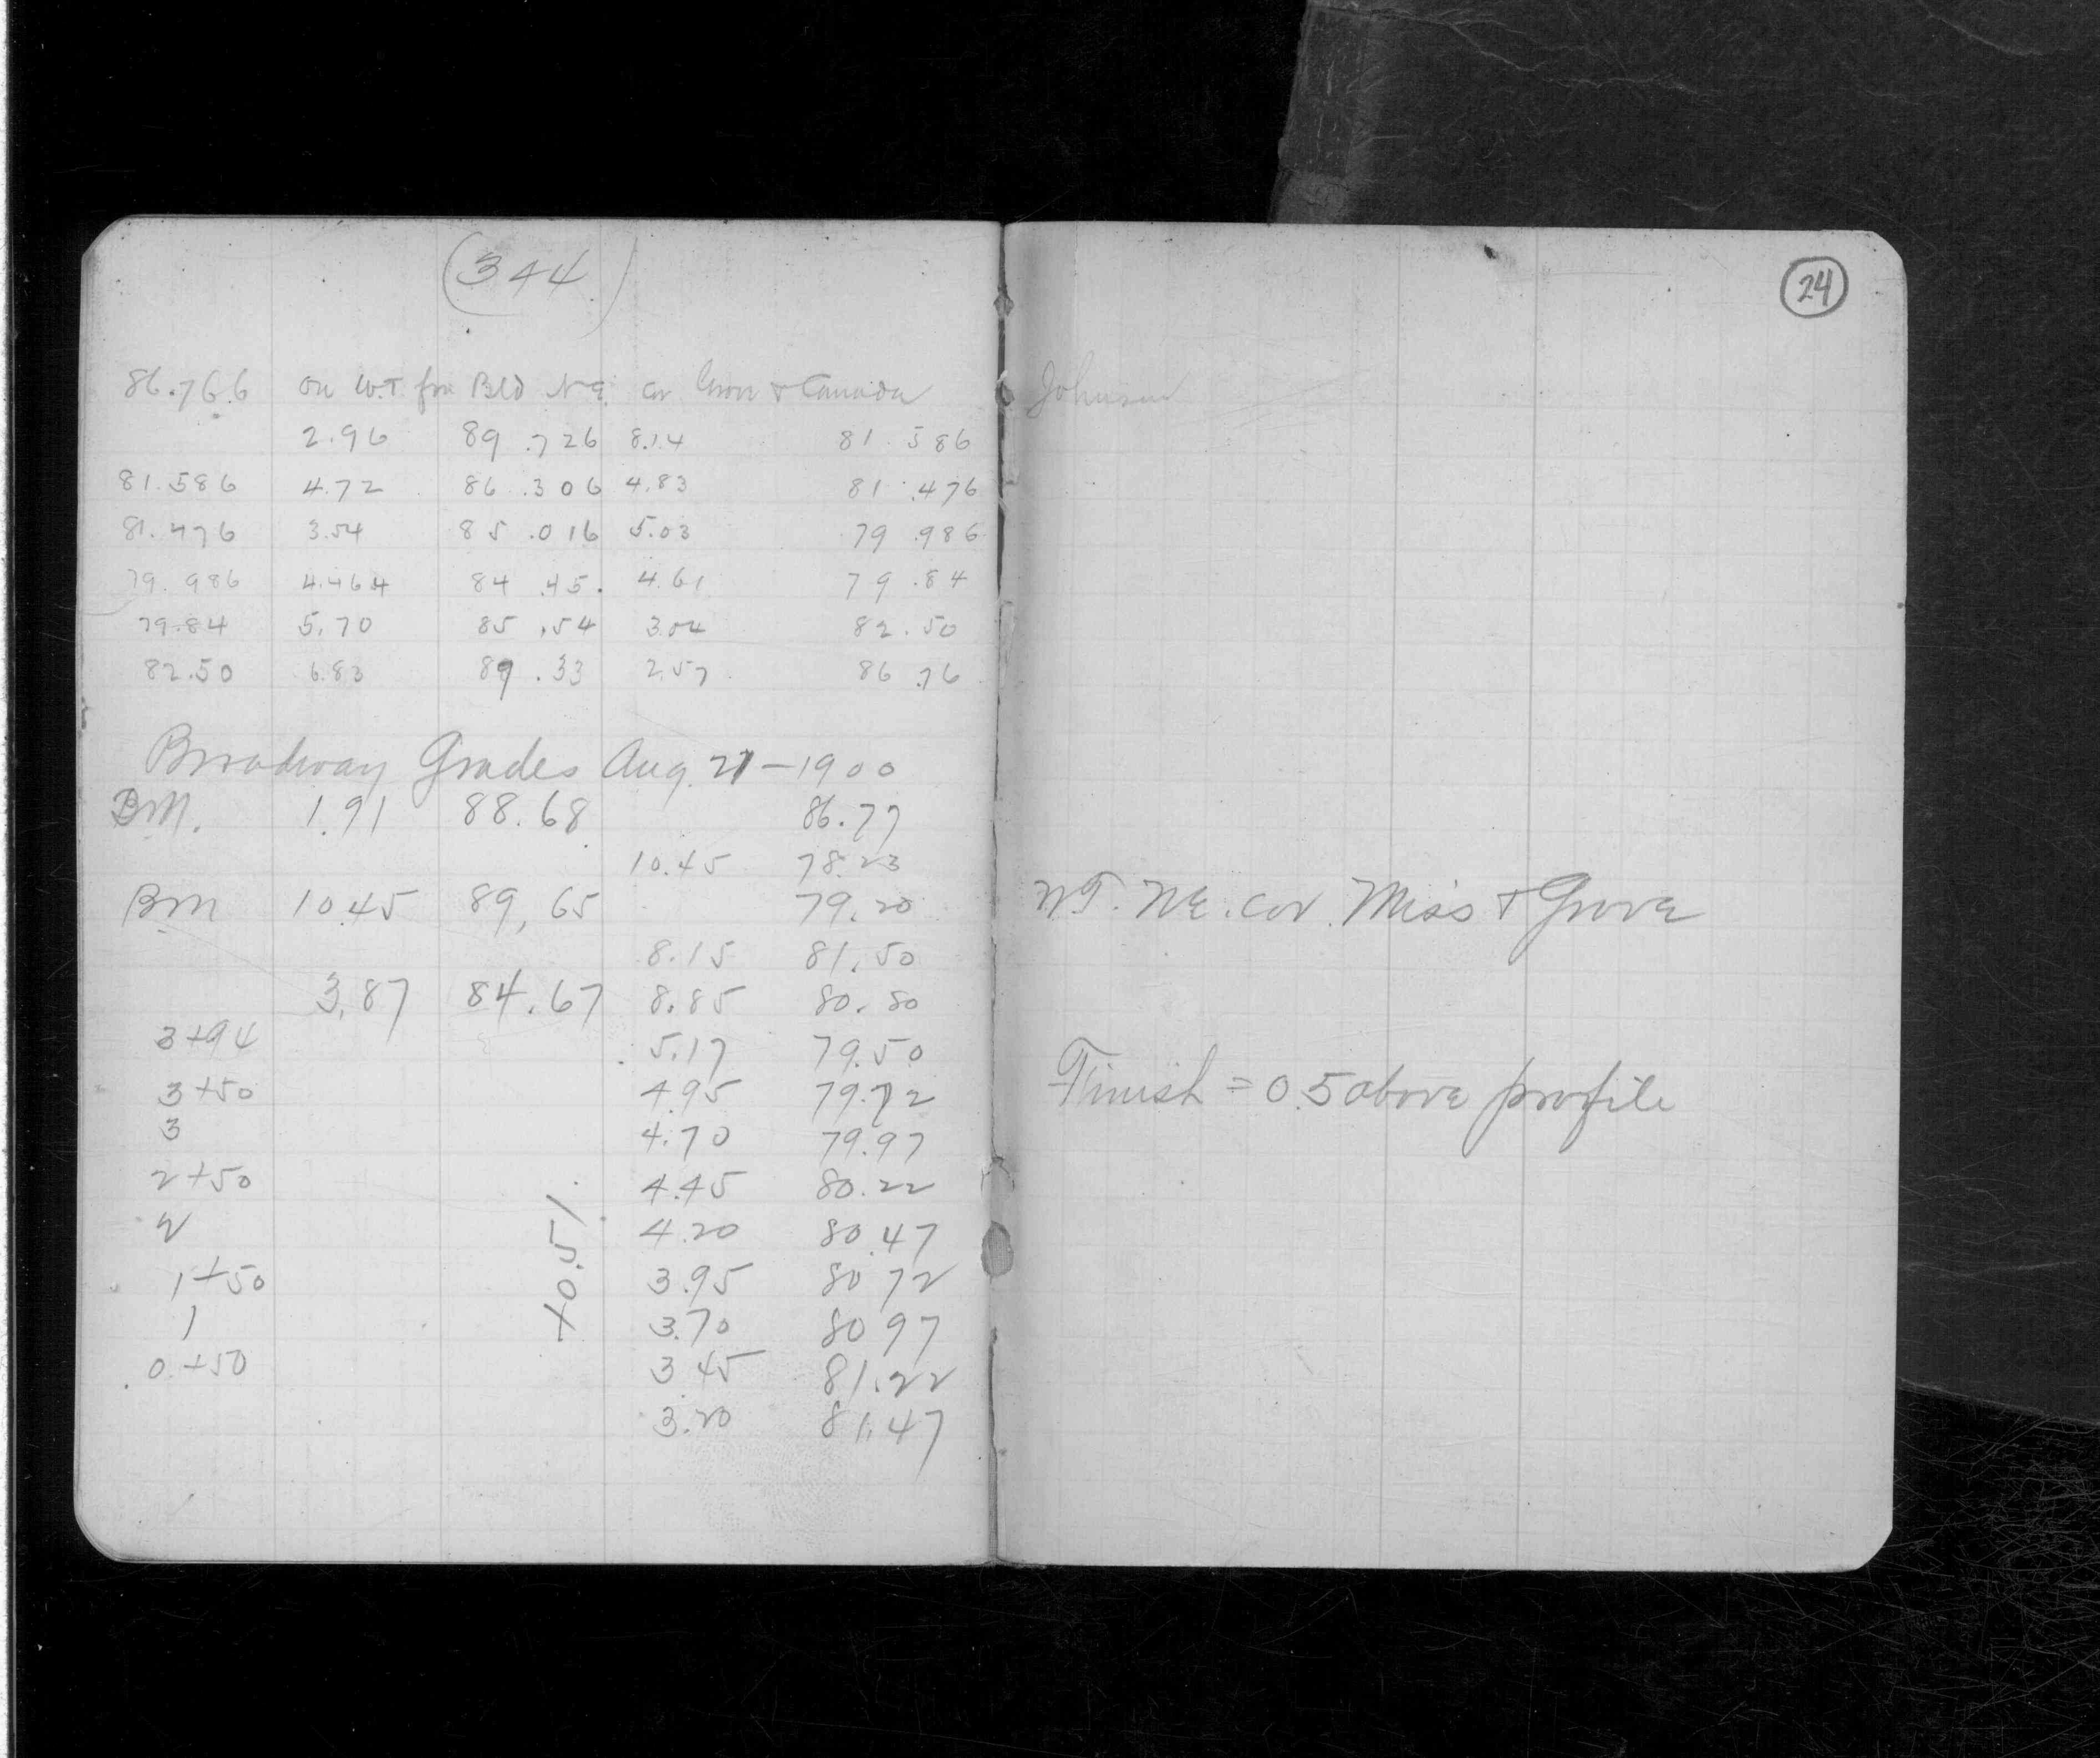 (344)
86.766 on W.T. from Bld N.E. cor & Canada
2.96 89.726 8.14 81.586
81.586 4.72 86.306 4.83 81.476
81.476 3.54 85.016 5.03 79.986
79.986 4.464 84.45. 4.61 79.84
79.84 5.70 85.54 3.04 82.50
82.50 6.83 89.33 2.57 86.76
Broadway Grades Aug. 21-1900
BM. 1.91 88.68 86.77
10.45 78.23
BM 10.45 89,65 79.20
8.15 81.50
3.87 84.67 8.85 80.80
3+94 5.17 79.50
3+50 4.95 79.72
3 4.70 79.97
2+50 4.45 80.22
2 4.20 80.47
1+50 3.95 80 72
1 3.70 80 97
0+50 3 45 81.22
3.20 81.47
+0.5%
24
Johnson
W.T. N.E. cor. Miss & Grove
Finish = 0.5 above profile